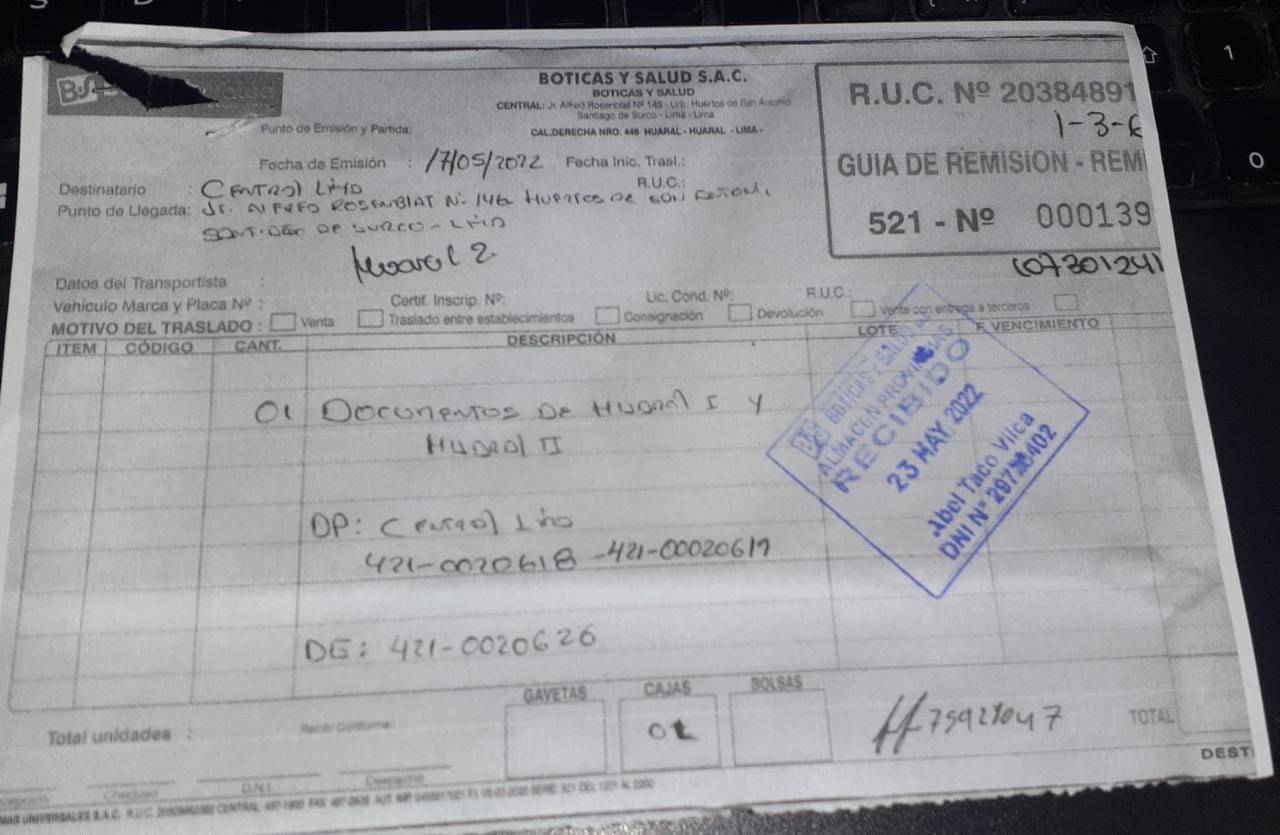 BS
BOTICAS Y SALUD S.A.C.
BOTICAS Y SALUD
CENTRAL: Jr. Alfred Rosenblat Nº 145 - Urb. Huertos de San Antonio
Santiago de Surco - Lima - Lima
Punto de Emisión y Partida:
CAL.DERECHA NRO. 446 HUARAL - HUARAL - LIMA -
R.U.C. Nº 20384891
1-3-6
GUIA DE REMISION - REM
521 - Nº 000139
Fecha de Emisión : 17/05/2022 Fecha Inic. Trasl.:
Destinatario : CENTRAL LIMA R.U.C.:
Punto de Llegada: Jr. ALFRED ROSENBLAT Nº 146 HUERTOS DE SAN
SANTIAGO DE SURCO - LIMA
Huaral 2
Datos del Transportista :
Vehículo Marca y Placa Nº : Certif. Inscrip. Nº: Lic. Cond. Nº: R.U.C.:
MOTIVO DEL TRASLADO : Venta Traslado entre establecimientos Consignación Devolución Venta con entrega a terceros
ITEM CÓDIGO CANT. DESCRIPCIÓN LOTE F. VENCIMIENTO
01 DOCUMENTOS DE HUARAL I Y
HUARAL II
DP: CENTRAL LIMA
421-0020618 -421-00020619
DG: 421-0020626
BS BOTICAS Y SALUD
ALMACEN PROVINCIAS
RECIBIDO
23 MAY 2022
Abel Taco Vilca
DNI Nº
GAVETAS CAJAS BOLSAS
01
75921047
TOTAL
Total unidades :
Recibí Conforme:
DEST
Chequeo D.N.I. Despacho